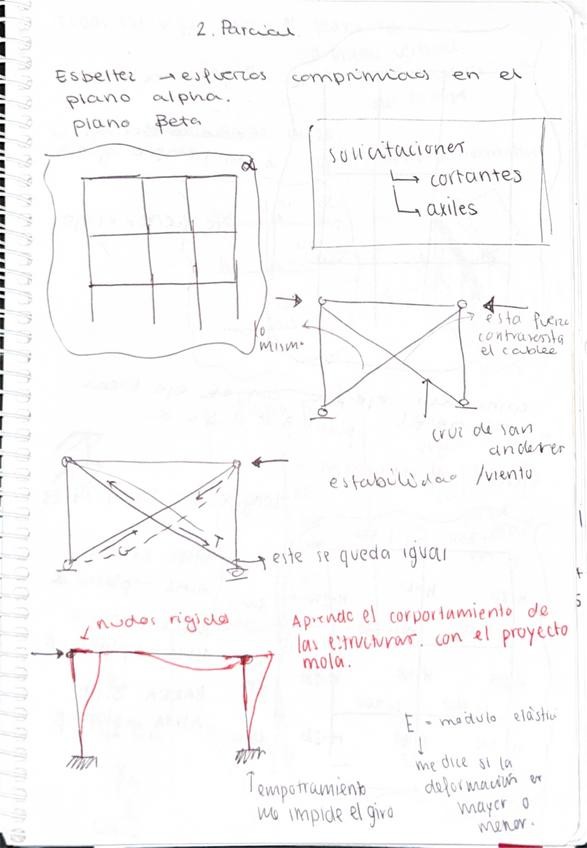 2. Parcial
Esbeltez → esfuerzos comprimidos en el
plano alpha.
plano Beta
α
solicitaciones
↳ cortantes
↳ axiles
lo
mismo
esta fuerza
contrarresta
el cable
cruz de san
anderer
estabilidad /viento
G
T
este se queda igual
nudos rigidos
Aprende el corportamiento de
las estructuras. con el proyecto
mola.
E = modulo elastic
↓
me dice si la
deformación es
mayor o
menor.
↑ empotramiento
impide el giro